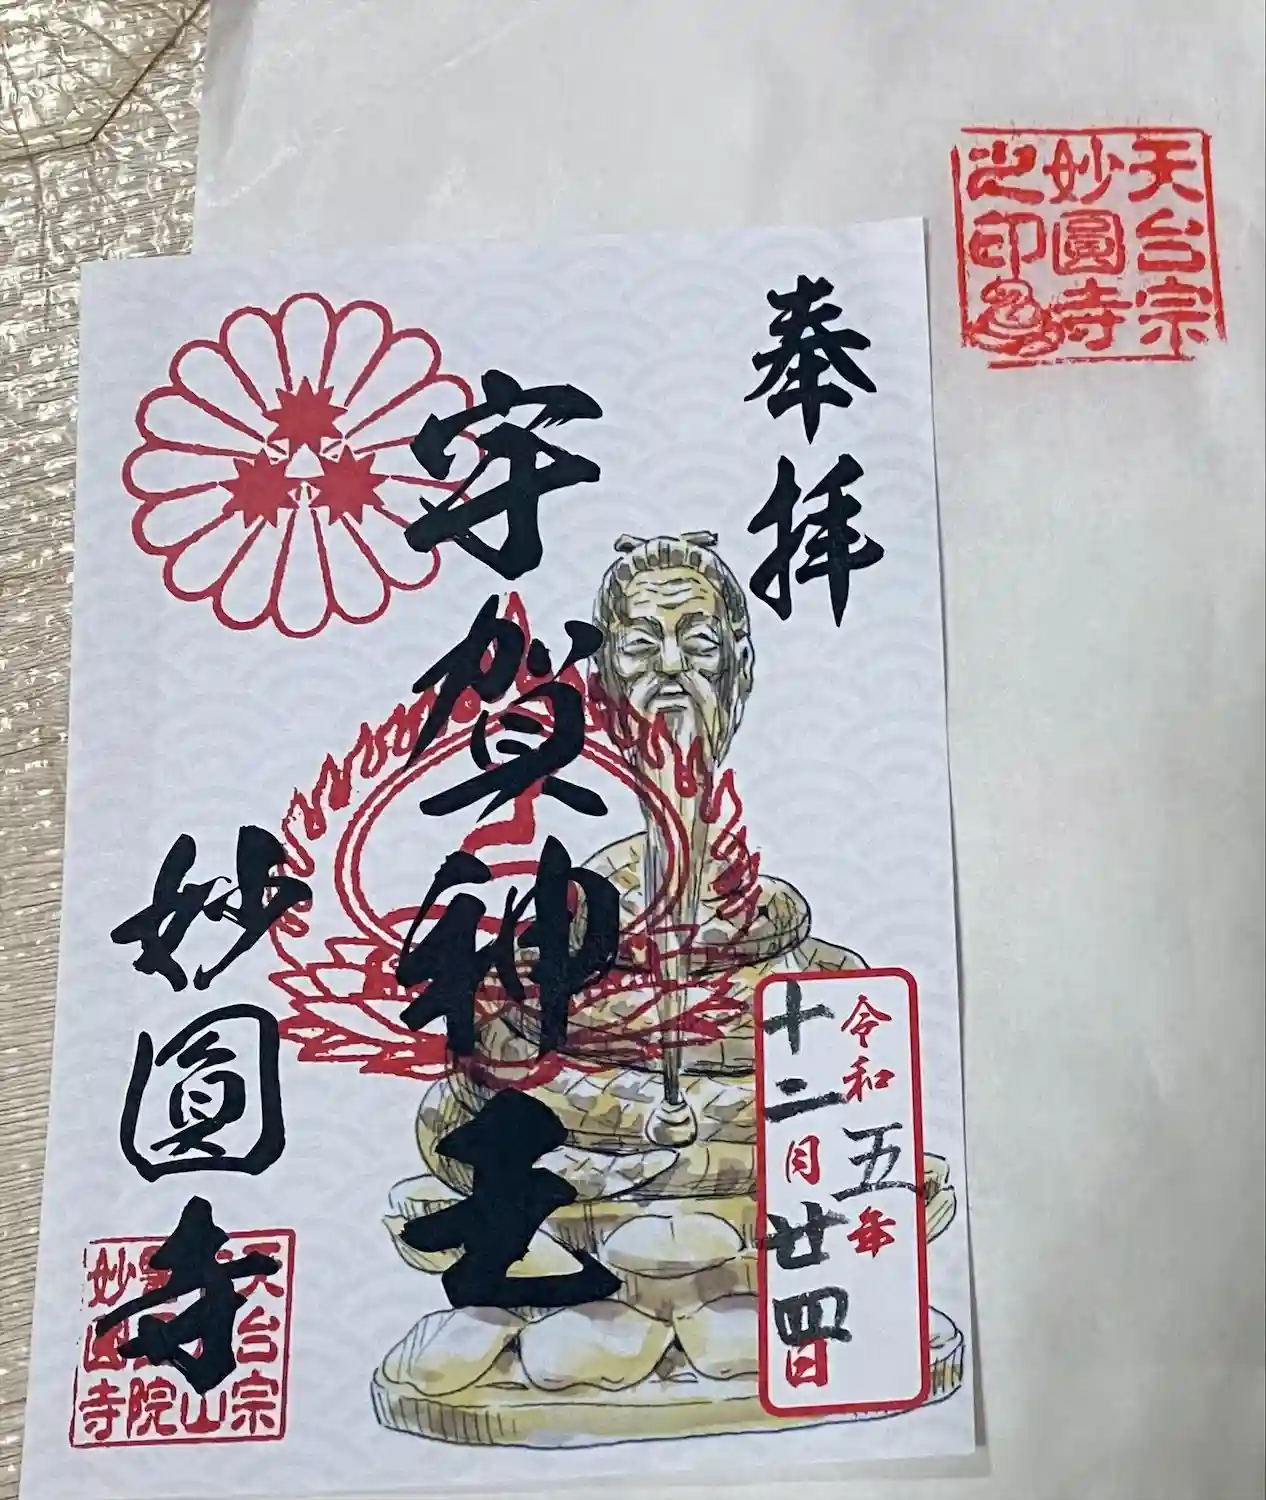 天台宗
妙圓寺
之印
奉拝
令和五年
十二月廿四日
宇賀神王
妙圓寺
天台宗
山
院
妙圓寺